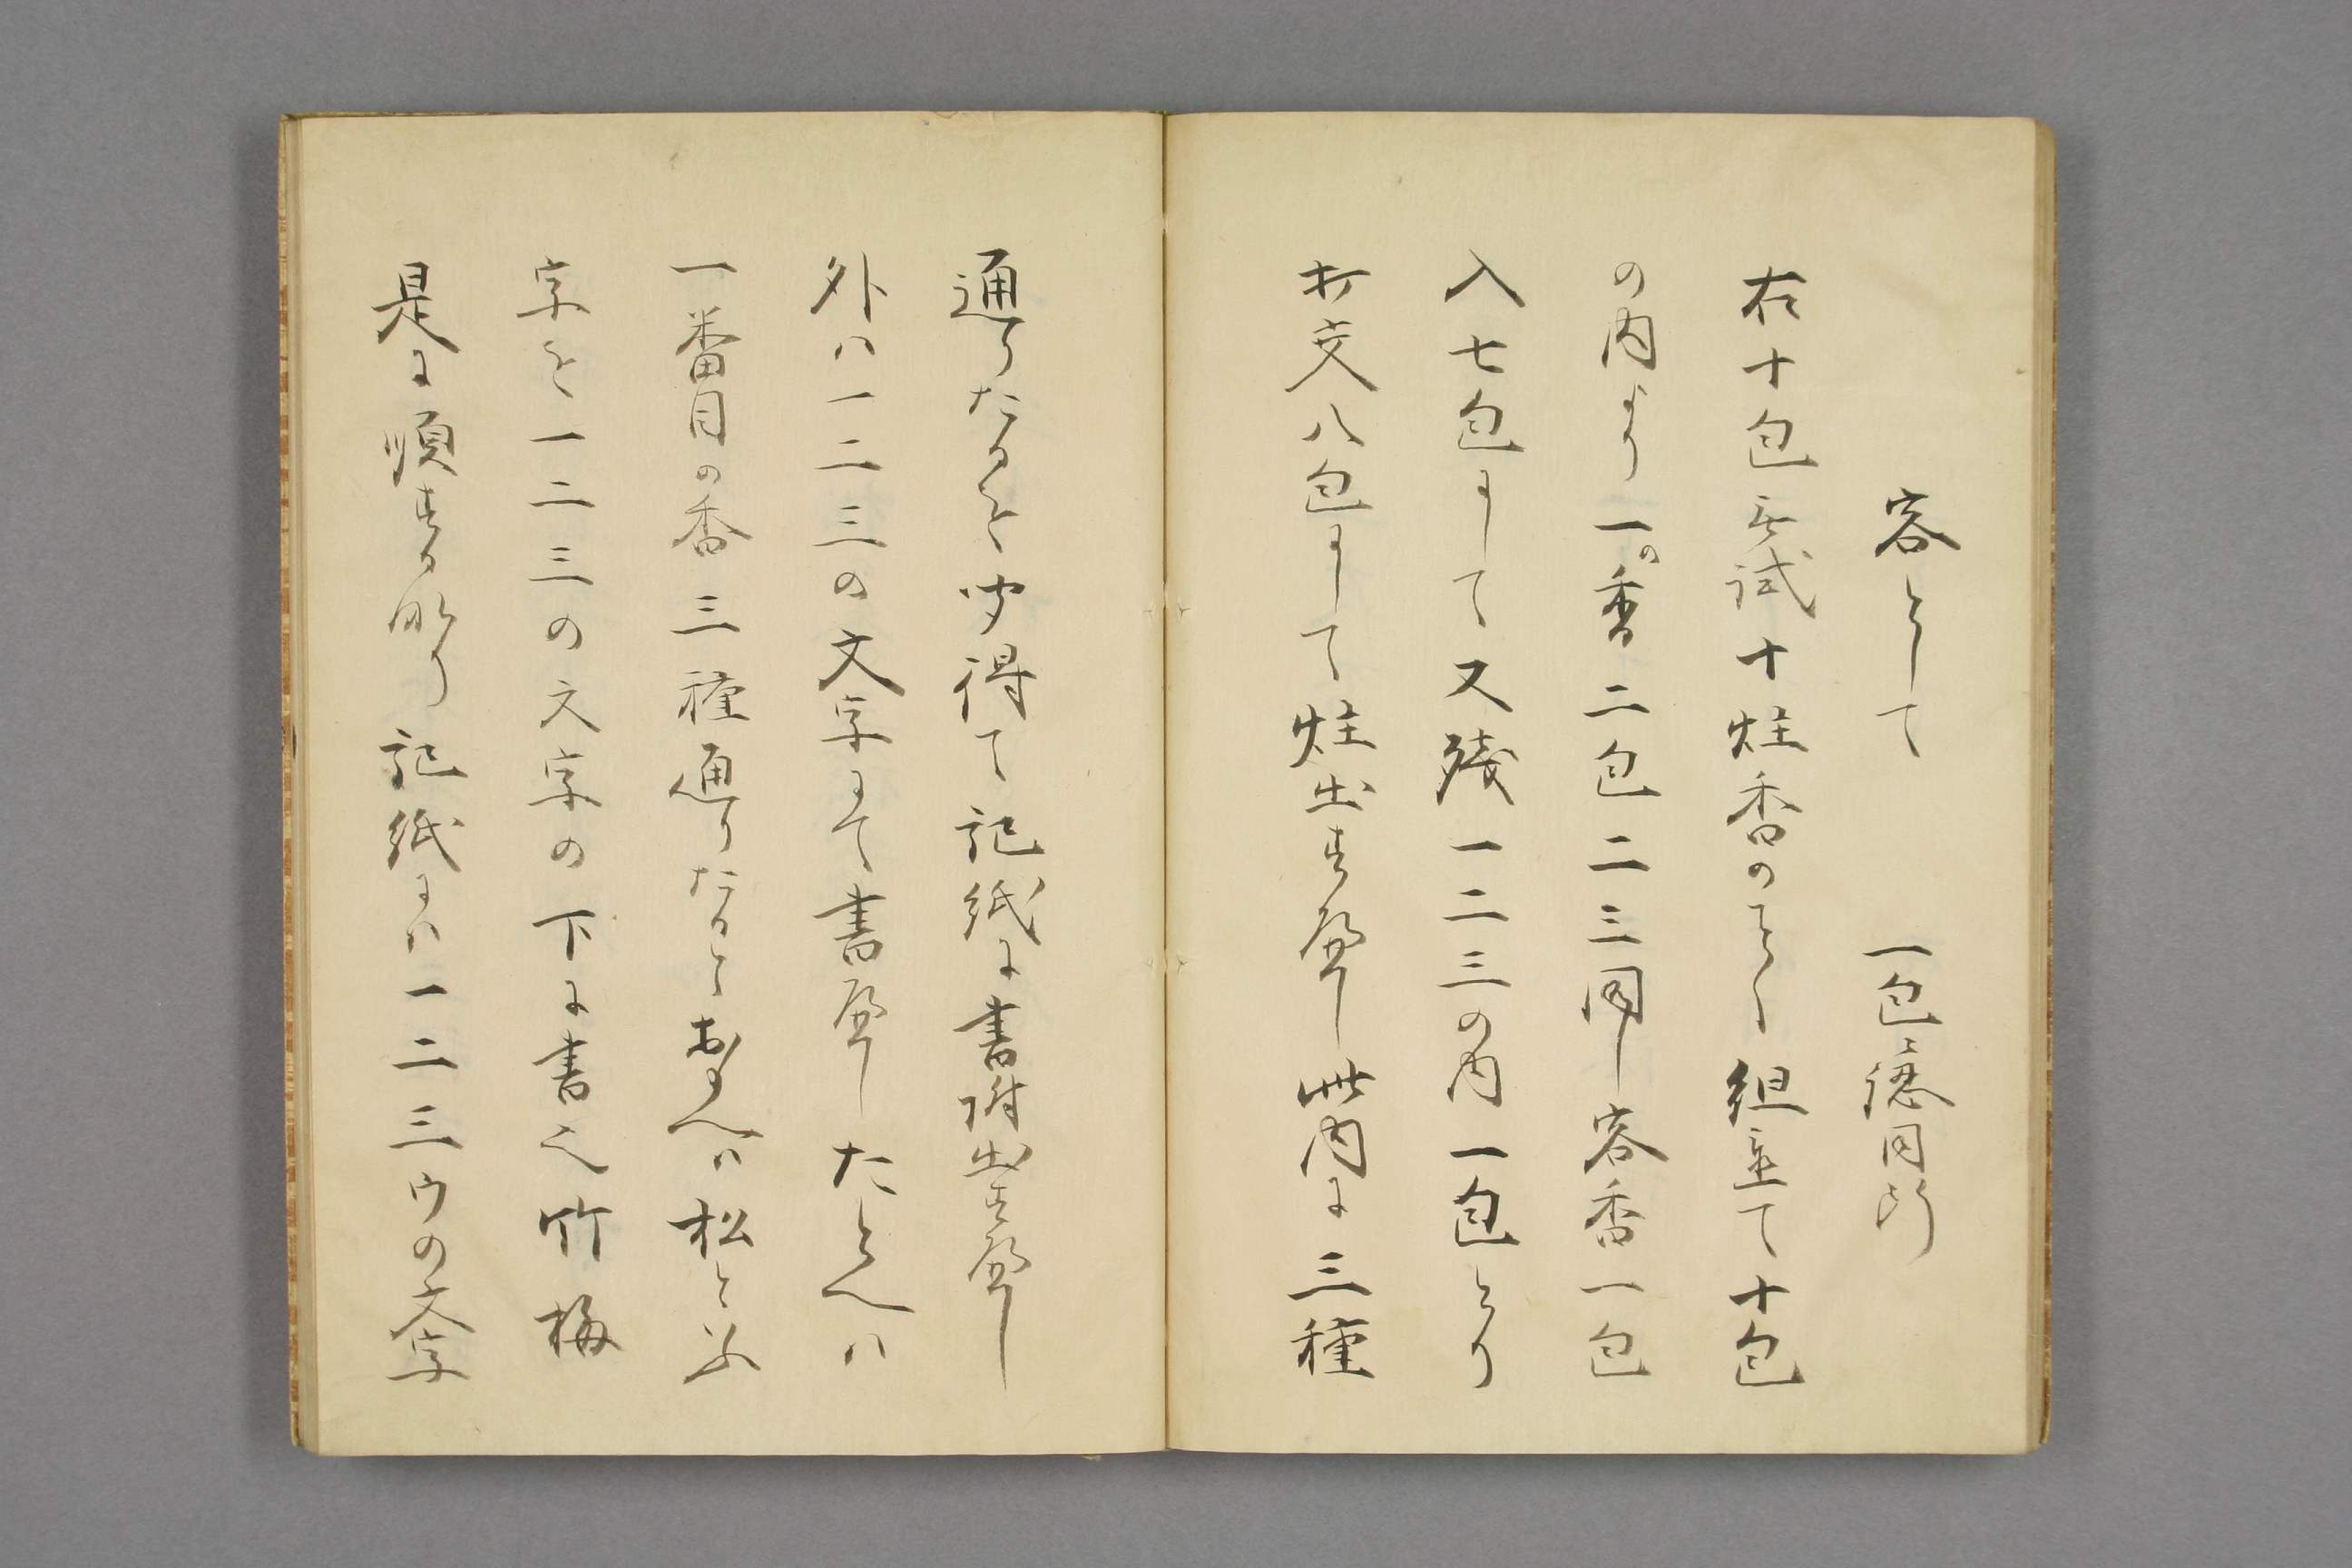 客として　一包に認同断
右十包無試十炷香のことく組立て十包
の内より一の香二包二三同し客香一包
入七包にして又残一二三の内一包とり
打交八包にして炷出すへし此内に三種
通りたるを聞得て記紙に書附出すへし
外は一二三の文字にて書へしたとへは
一番目の香三種通りたるとおもへは松と云
字を一二三の文字の下に書之竹梅
是に順するなり記紙には一二三ウの文字